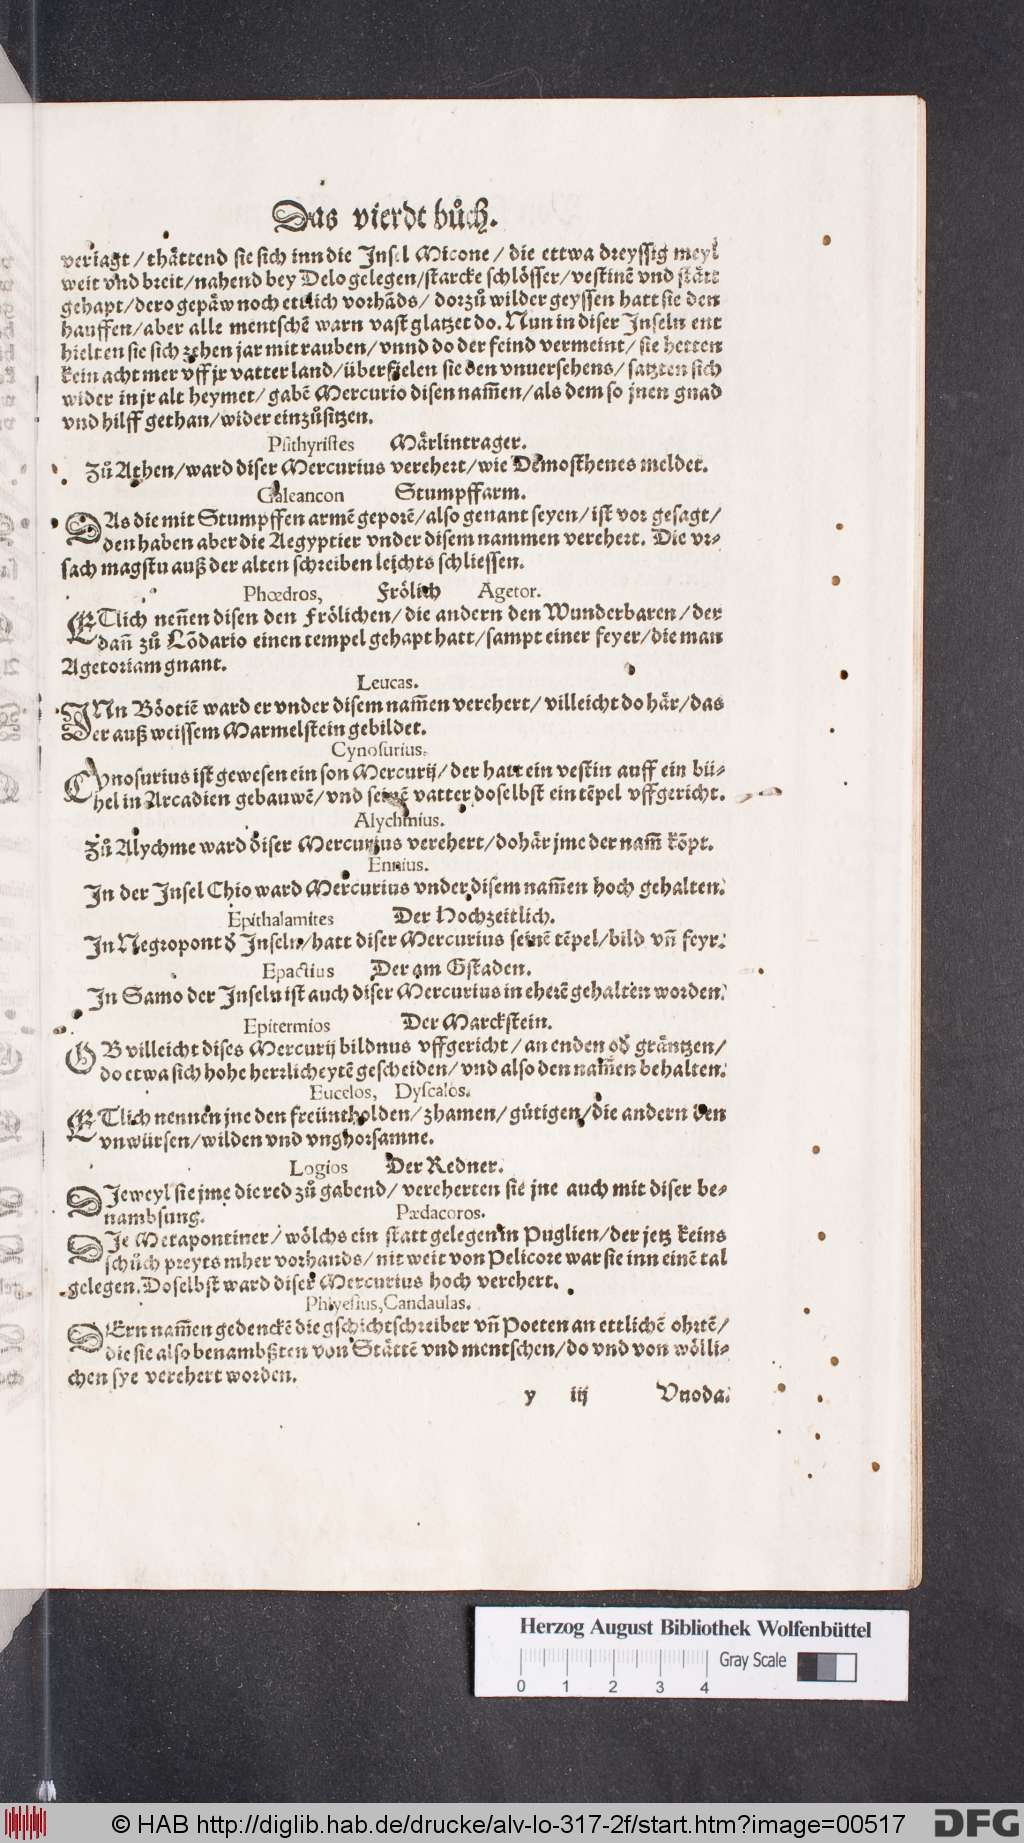 Das vierdt bůch.
veriagt / thättend sie sich inn die Insel Micone / die ettwa dreyssig meyl
weit vnd breit / nahend bey Delo gelegen / starcke schlösser / vestinē vnd stätt
gehapt / dero gepäw noch ettlich vorhāds / dorzů wilder geyssen hatt sie den
hauffen / aber alle mentschē warn vast glatzet do. Nun in diser Inseln ent
hielten sie sich zehen jar mit rauben / vnnd do der feind vermeint / sie hetten
kein acht mer vff jr vatterland / überfielen sie den vnuersehens / satzten sich
wider in jr alt heymet / gabē Mercurio disen nam̄en / als dem so jnen gnad
vnd hilff gethan / wider einzůsitzen.
Psithyristes Märlintrager.
Zů Athen / ward diser Mercurius verehert / wie Demosthenes meldet.
Galeancon Stumpffarm.
DAs die mit Stumpffen armē geporē / also genant seyen / ist vor gesagt /
den haben aber die Aegyptier vnder disem nammen verehert. Die vr-
sach magstu auß der alten schreiben leichts schliessen.
Phœdros, Frölich Agetor.
ETlich neñen disen den Frölichen / die andern den Wunderbaren / der
dañ zů Lōdario einen tempel gehapt hatt / sampt einer feyer / die man
Agetoriam gnant.
Leucas.
INn Böotiē ward er vnder disem nam̄en verehert / villeicht do här / das
er auß weissem Marmelstein gebildet.
Cynosurius.
Cynosurius ist gewesen ein son Mercurij / der hatt ein vestin auff ein bü-
hel in Arcadien gebauwē / vnd seinē vatter doselbst ein tēpel vffgericht.
Alychmius.
Zů Alychme ward diser Mercurius verehert / dohär jme der nam̄ kōpt.
Ennius.
In der Insel Chio ward Mercurius vnder disem nam̄en hoch gehalten.
Epithalamites Der Hochzeitlich.
In Negropont d̄ Inseln / hatt diser Mercurius seinē tēpel / bild vñ feyr.
Epactius Der am Gstaden.
In Samo der Inseln ist auch diser Mercurius in eherē gehalten worden.
Epitermios Der Marckstein.
OB villeicht dises Mercurij bildnus vffgericht / an enden od̄ gräntzen /
do etwa sich hohe herrlicheytē gescheiden / vnd also den nam̄en behalten.
Eucelos, Dyscalos.
ETlich nennen jne den freüntholden / zhamen / gütigen / die andern den
vnwürsen / wilden vnd vnghorsamne.
Logios Der Redner.
DIeweyl sie jme die red zů gabend / vereherten sie jne auch mit diser be-
nambsung. Pædacoros.
DIe Metapontiner / wölchs ein statt gelegen in Puglien / der jetz keins
schůch preyts mher vorhands / nit weit von Pelicore war sie inn einē tal
gelegen. Doselbst ward diser Mercurius hoch verehert.
Phlyesius, Candaulas.
DErn nam̄en gedenckē die gschichtschreiber vñ Poeten an ettlichē ohrtē /
die sie also benambßten von Stättē vnd mentschen / do vnd von wölli-
chen sye verehert worden.
y iij Vnoda.
Herzog August Bibliothek Wolfenbüttel
Gray Scale
0 1 2 3 4
© HAB http://diglib.hab.de/drucke/alv-lo-317-2f/start.htm?image=00517
DFG